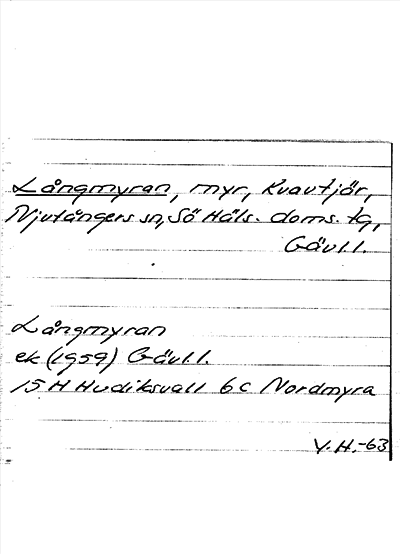 Långmyran, myr, Kvavtjär,
Njutångers sn, Sö Häls. doms. tg,
Gävl.l.
Långmyran
ek (1959) Gävl.l.
15 H Hudiksvall 6c Nordmyra
Y.H.-63